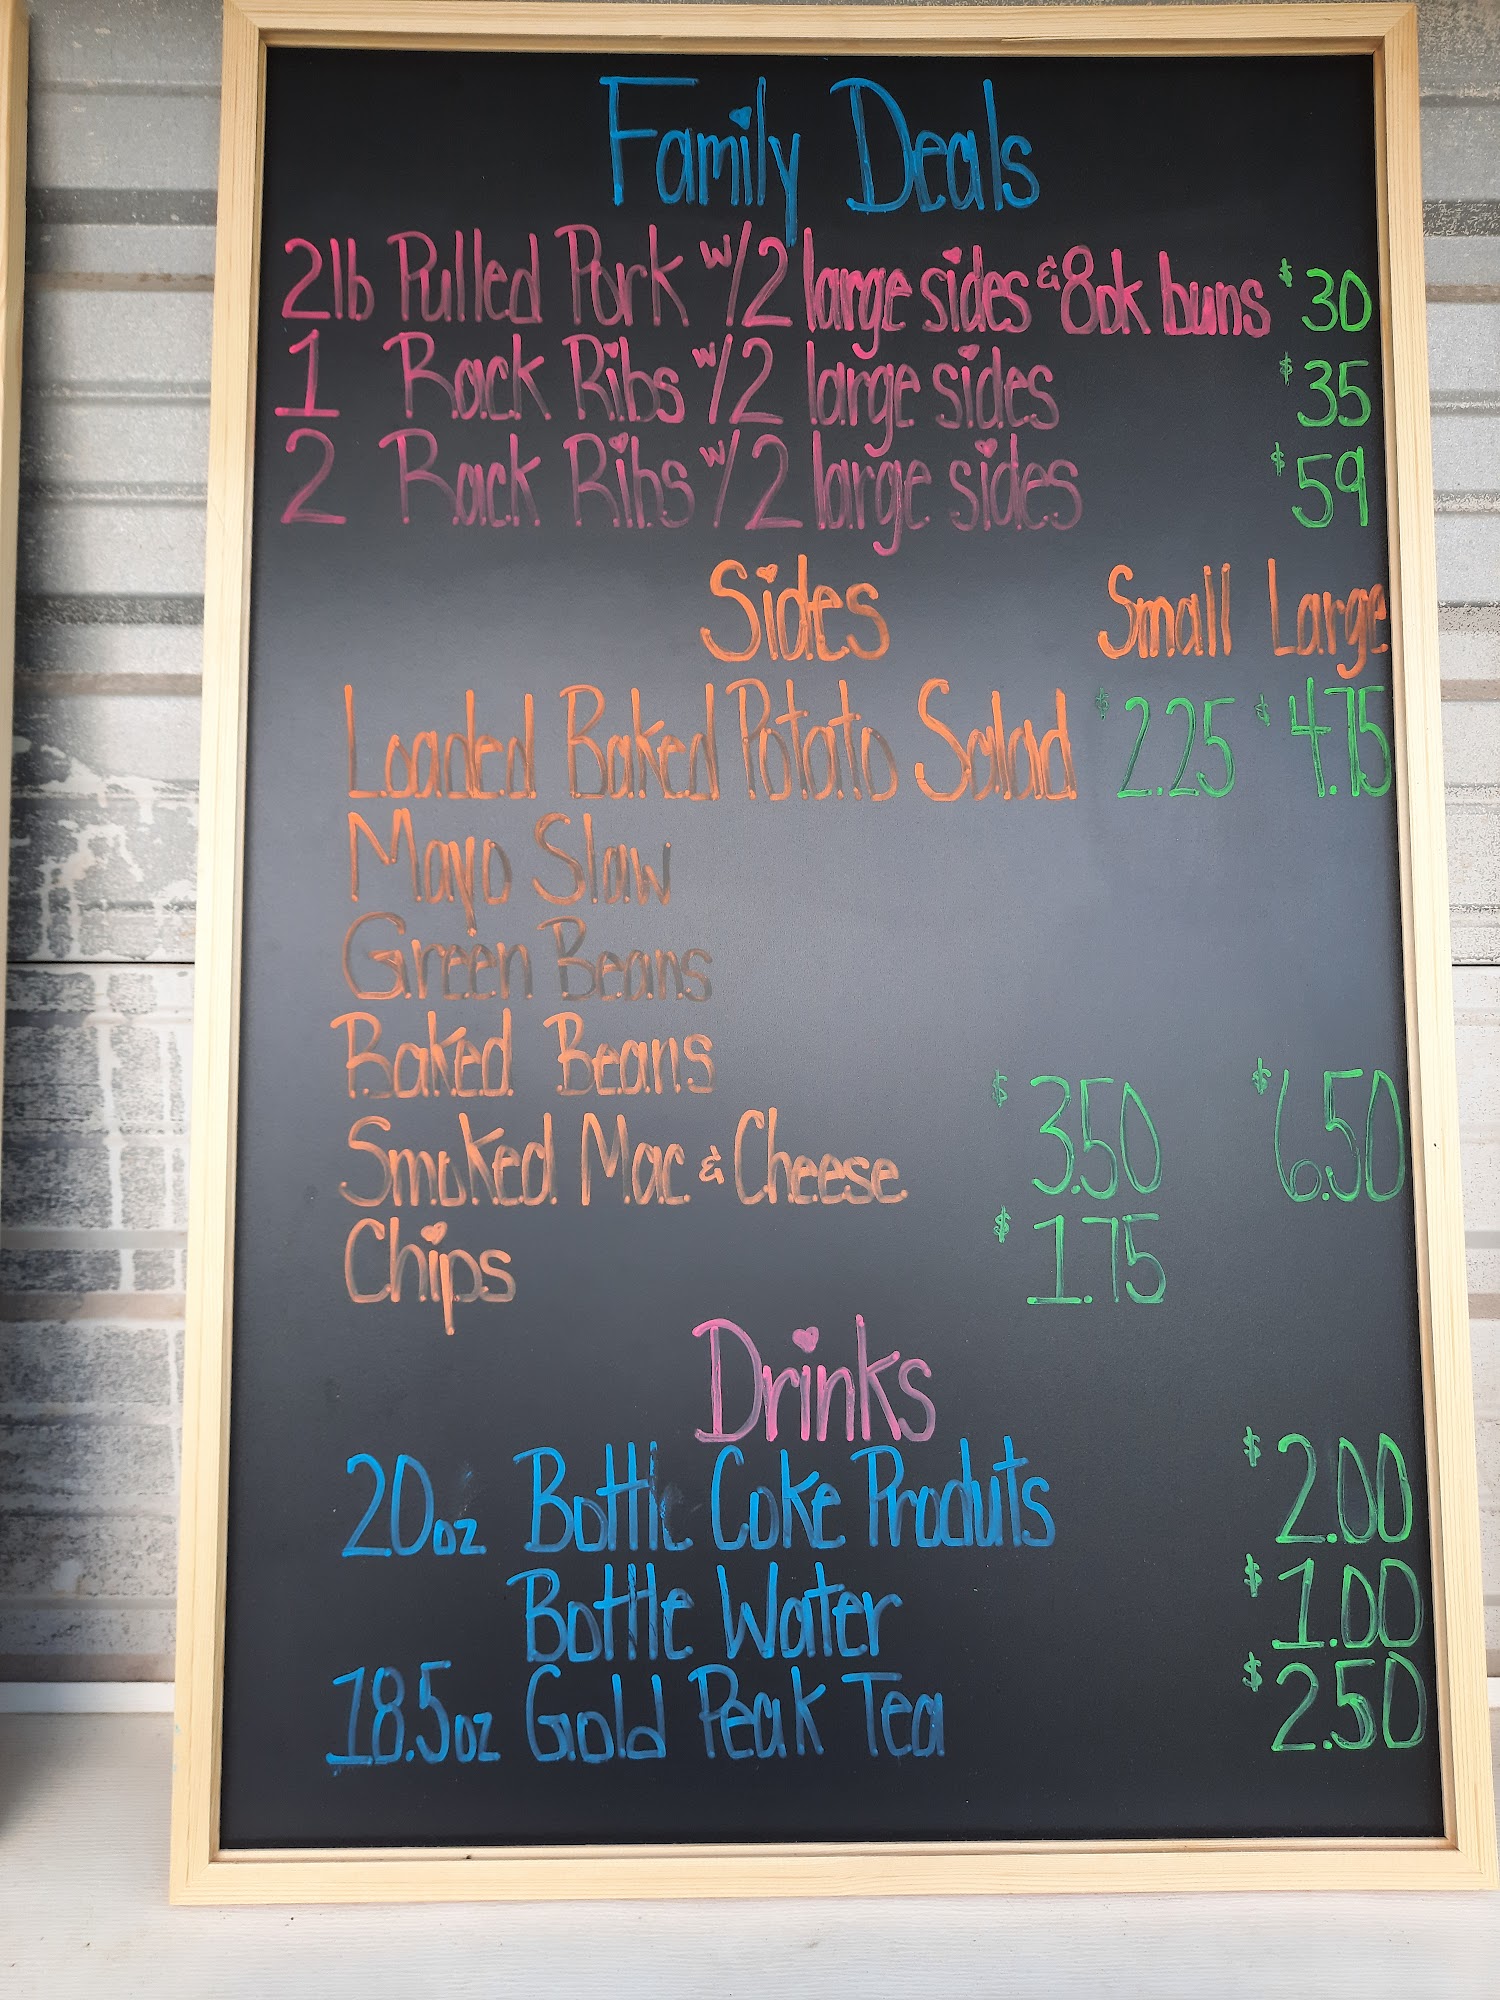 Family Deals
2lb Pulled Pork w/2 large sides & 8pk buns $30
1 Rack Ribs w/2 large sides $35
2 Rack Ribs w/2 large sides $59
Sides Small Large
Loaded Baked Potato Salad $2.25 $4.75
Mayo Slaw
Green Beans
Baked Beans
Smoked Mac & Cheese $3.50 $6.50
Chips $1.75
Drinks
20oz Bottle Coke Produts $2.00
Bottle Water $1.00
18.5oz Gold Peak Tea $2.50